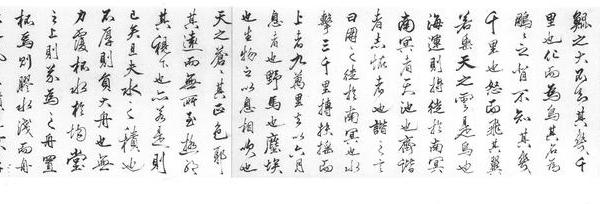 鯤之大不知其幾千
里也化而為鳥其名為
鵬〻之背不知其幾
千里也怒而飛其翼
若垂天之雲是鳥也
海運則將徙於南冥
南冥者天池也齊諧
者志怪者也諧之言
曰鵬之徙於南冥也水
擊三千里摶扶搖而
上者九萬里去以六月
息者也野馬也塵埃
也生物之以息相吹也
天之蒼〻其正色耶
其遠而無所至極耶
其視下也亦若是則
已矣且夫水之積也
不厚則負大舟也無
力覆杯水於坳堂
之上則芥為之舟置
杯焉則膠水淺而舟